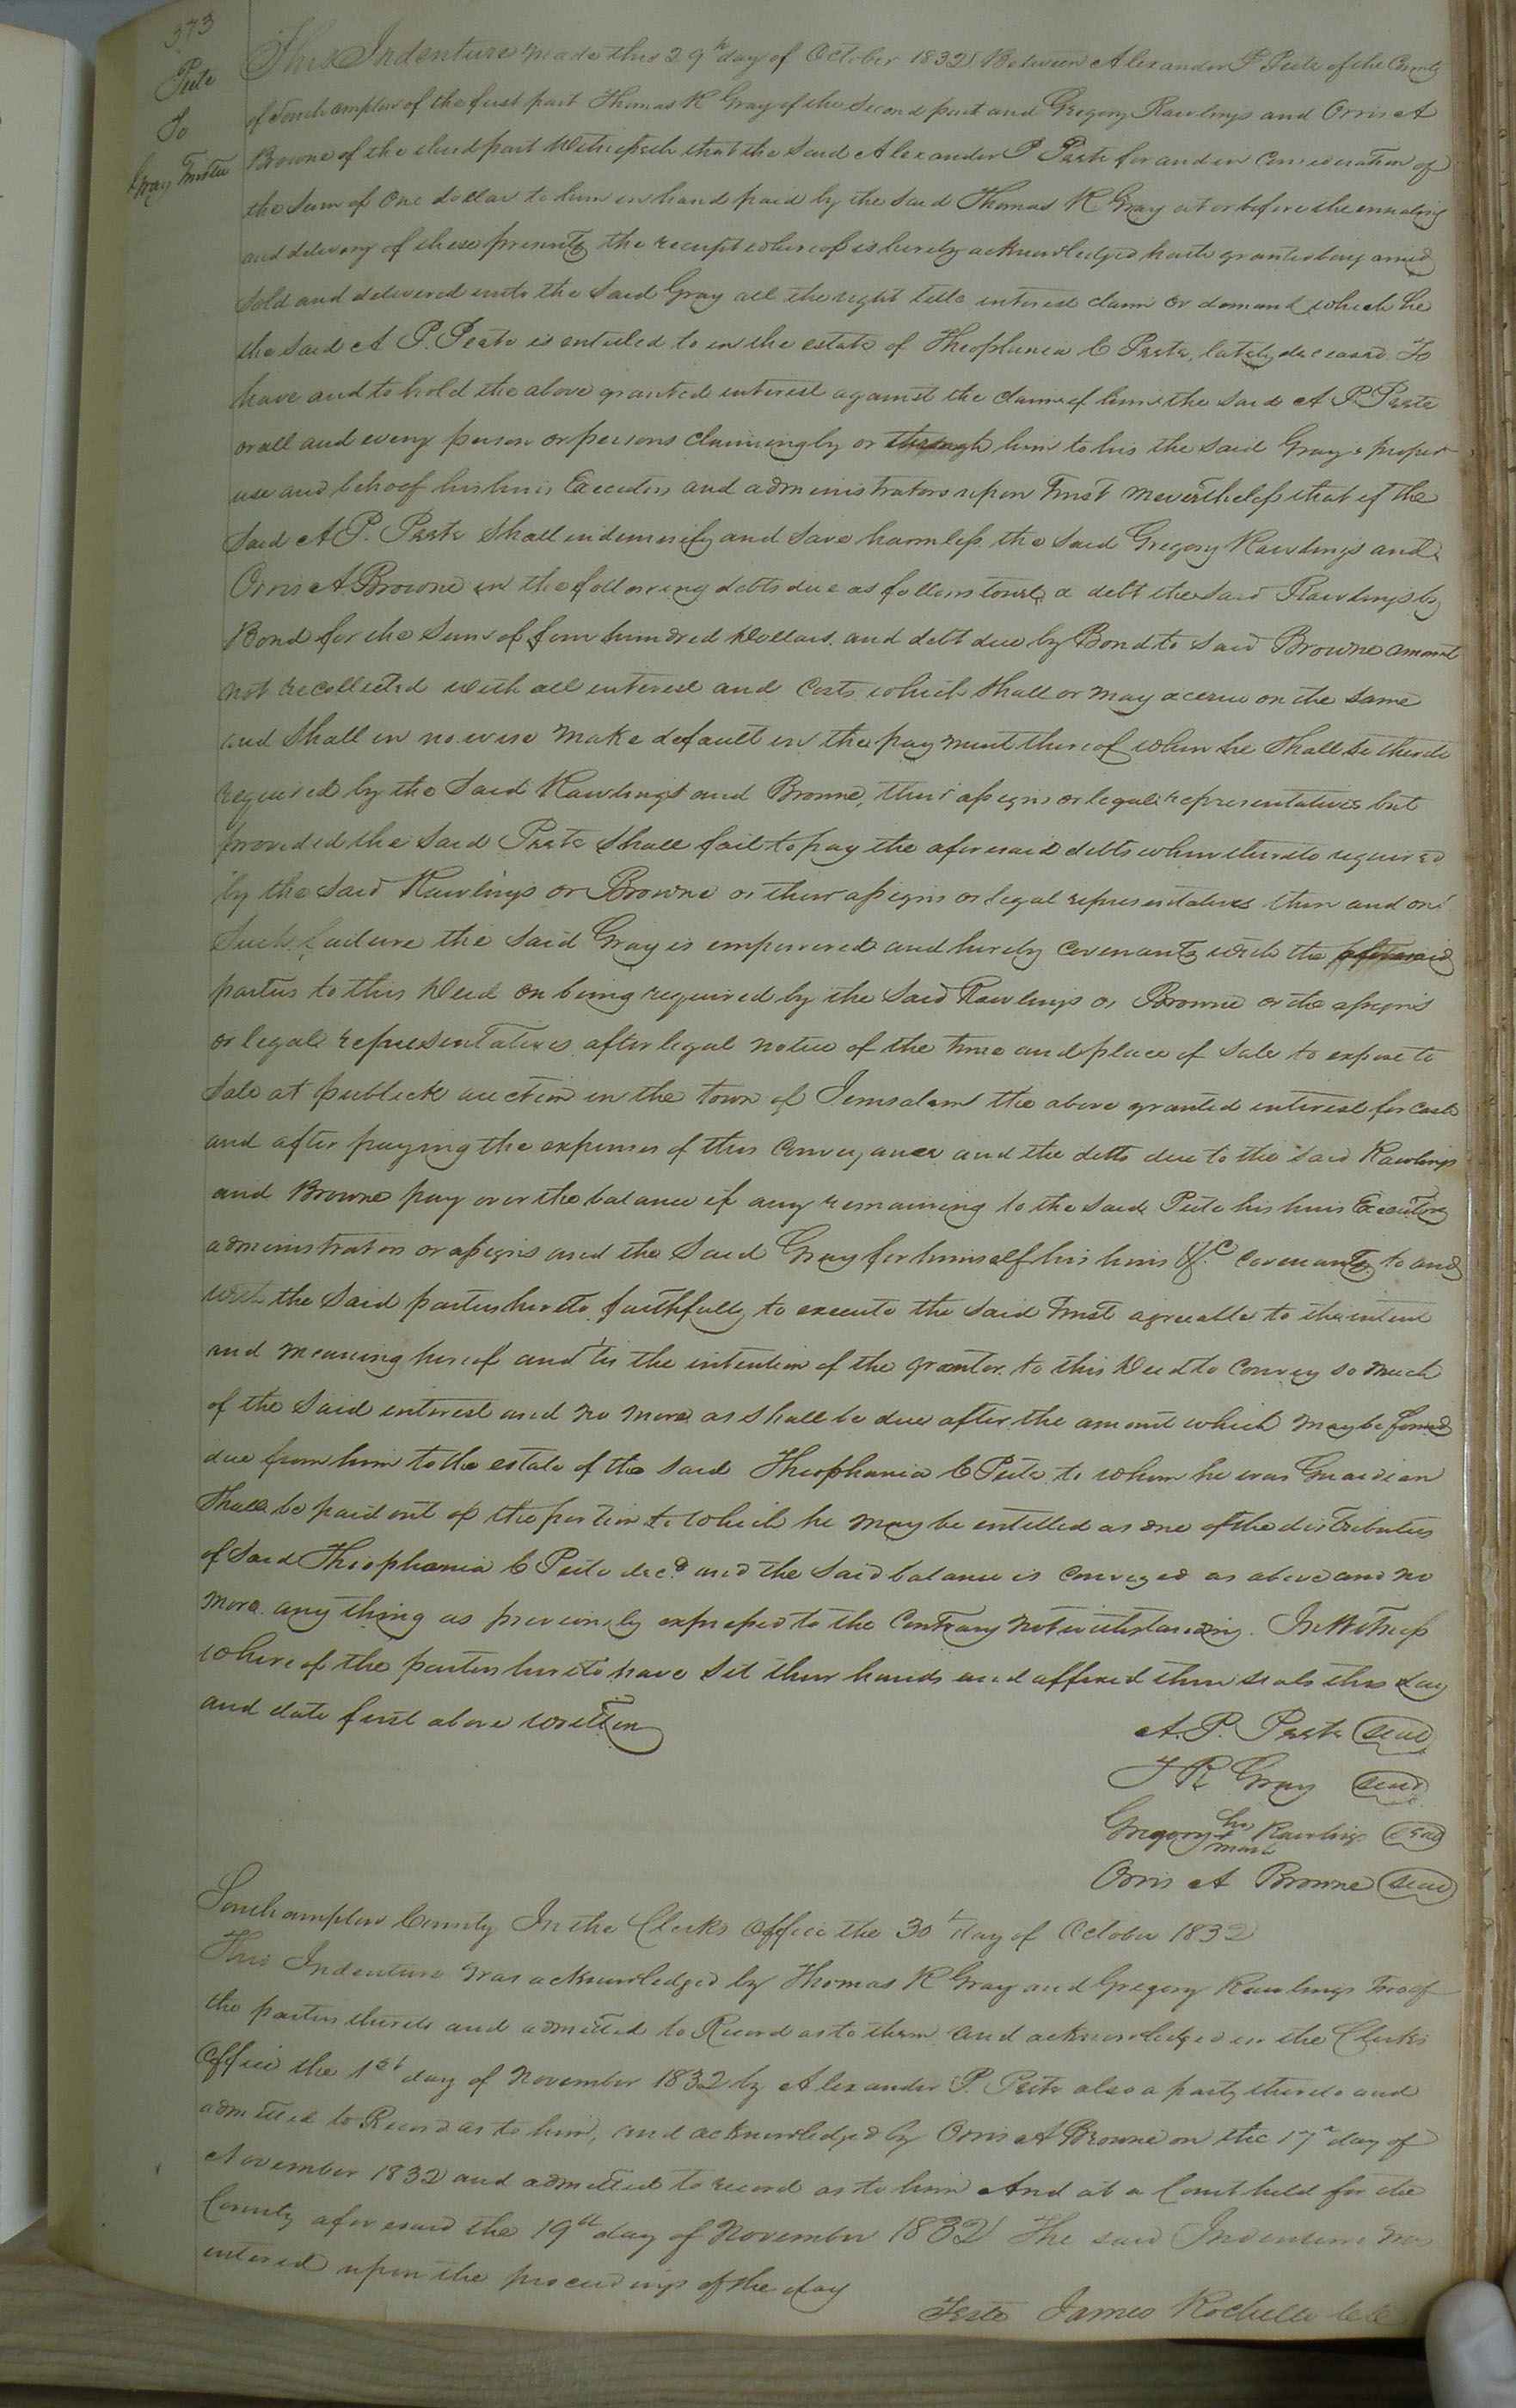 373
Peete
To
Gray Trustee
This Indenture made this 29th day of October 1832 Between Alexander P Peete of the County
of Southampton of the first part Thomas R Gray of the Second part and Gregory Rawlings and Orris A
Browne of the third part Witnesseth that the Said Alexander P Peete for and in Consideration of
the Sum of One dollar to him in hand paid by the Said Thomas R Gray at or before the ensealing
and delivery of these presents the receipt whereof is hereby acknowledged hath granted bargained
Sold and delivered unto the Said Gray all the right title interest claim or demand which he
the Said A P. Peete is entitled to in the estate of Theophania C Peete, lately deceased To
have and to hold the above granted interest against the claim of him the Said A P. Peete
or all and every person or persons claiming by or through him to his the Said Gray's proper
use and behoof his heirs Executors and administrators upon Trust Nevertheless that if the
Said A P. Peete Shall indemnify and Save harmless the Said Gregory Rawlings and
Orris A. Browne in the following debts due as follows towit, a debt the Said Rawlings by
Bond for the Sum of four hundred Dollars and debt due by Bond to Said Browne amount
not recollected with all interest and Costs which Shall or may accrue on the Same
and Shall in no wise Make default in the payment thereof when he Shall be thereto
required by the Said Rawlings and Browne, their assigns or legal representatives but
provided the Said Peete Shall fail to pay the aforesaid debts when thereto required
by the Said Rawlings or Browne or their assigns or legal representatives then and on
Such failure the Said Gray is empowered and hereby Covenants with the aforesaid
parties to this Deed on being required by the Said Rawlings or Browne or the assigns
or legal representatives after legal notice of the time and place of Sale to expose to
Sale at publick auction in the town of Jerusalem the above granted interest for Cash
and after paying the expenses of this Conveyance and the debts due to the Said Rawlings
and Browne pay over the balance if any remaining to the Said Peete his heirs Executors
administrators or assigns and the Said Gray for himself his heirs &c Covenants to and
with the Said parties hereto faithfully to execute the Said Trust agreeable to the intent
and Meaning hereof and tis the intention of the grantor to this Deed to Convey so Much
of the Said interest and no more as Shall be due after the amount which may be found
due from him to the estate of the Said Theophania C Peete to whom he was Guardian
Shall be paid out of the portion to which he may be entitled as one of the distributees
of Said Theophania C Peete decd and the Said balance is Conveyed as above and no
More any thing as previously expressed to the Contrary Notwithstanding. In Witness
whereof the parties hereto have Set their hands and affixed their seals this day
and date first above written
A. P. Peete (seal)
T R Gray (seal)
Gregory his + mark Rawlings (seal)
Orris A Browne (seal)
Southampton County In the Clerks Office the 30th day of October 1832
This Indenture was acknowledged by Thomas R Gray and Gregory Rawlings two of
the parties thereto and admitted to Record as to them and acknowledged in the Clerks
Office the 1st day of November 1832 by Alexander P. Peete also a party thereto and
admitted to Record as to him, and acknowledged by Orris A Browne on the 17th day of
November 1832 and admitted to record as to him And at a Court held for the
County aforesaid the 19th day of November 1832 The said Indenture was
entered upon the proceedings of the day
Teste James Rochelle